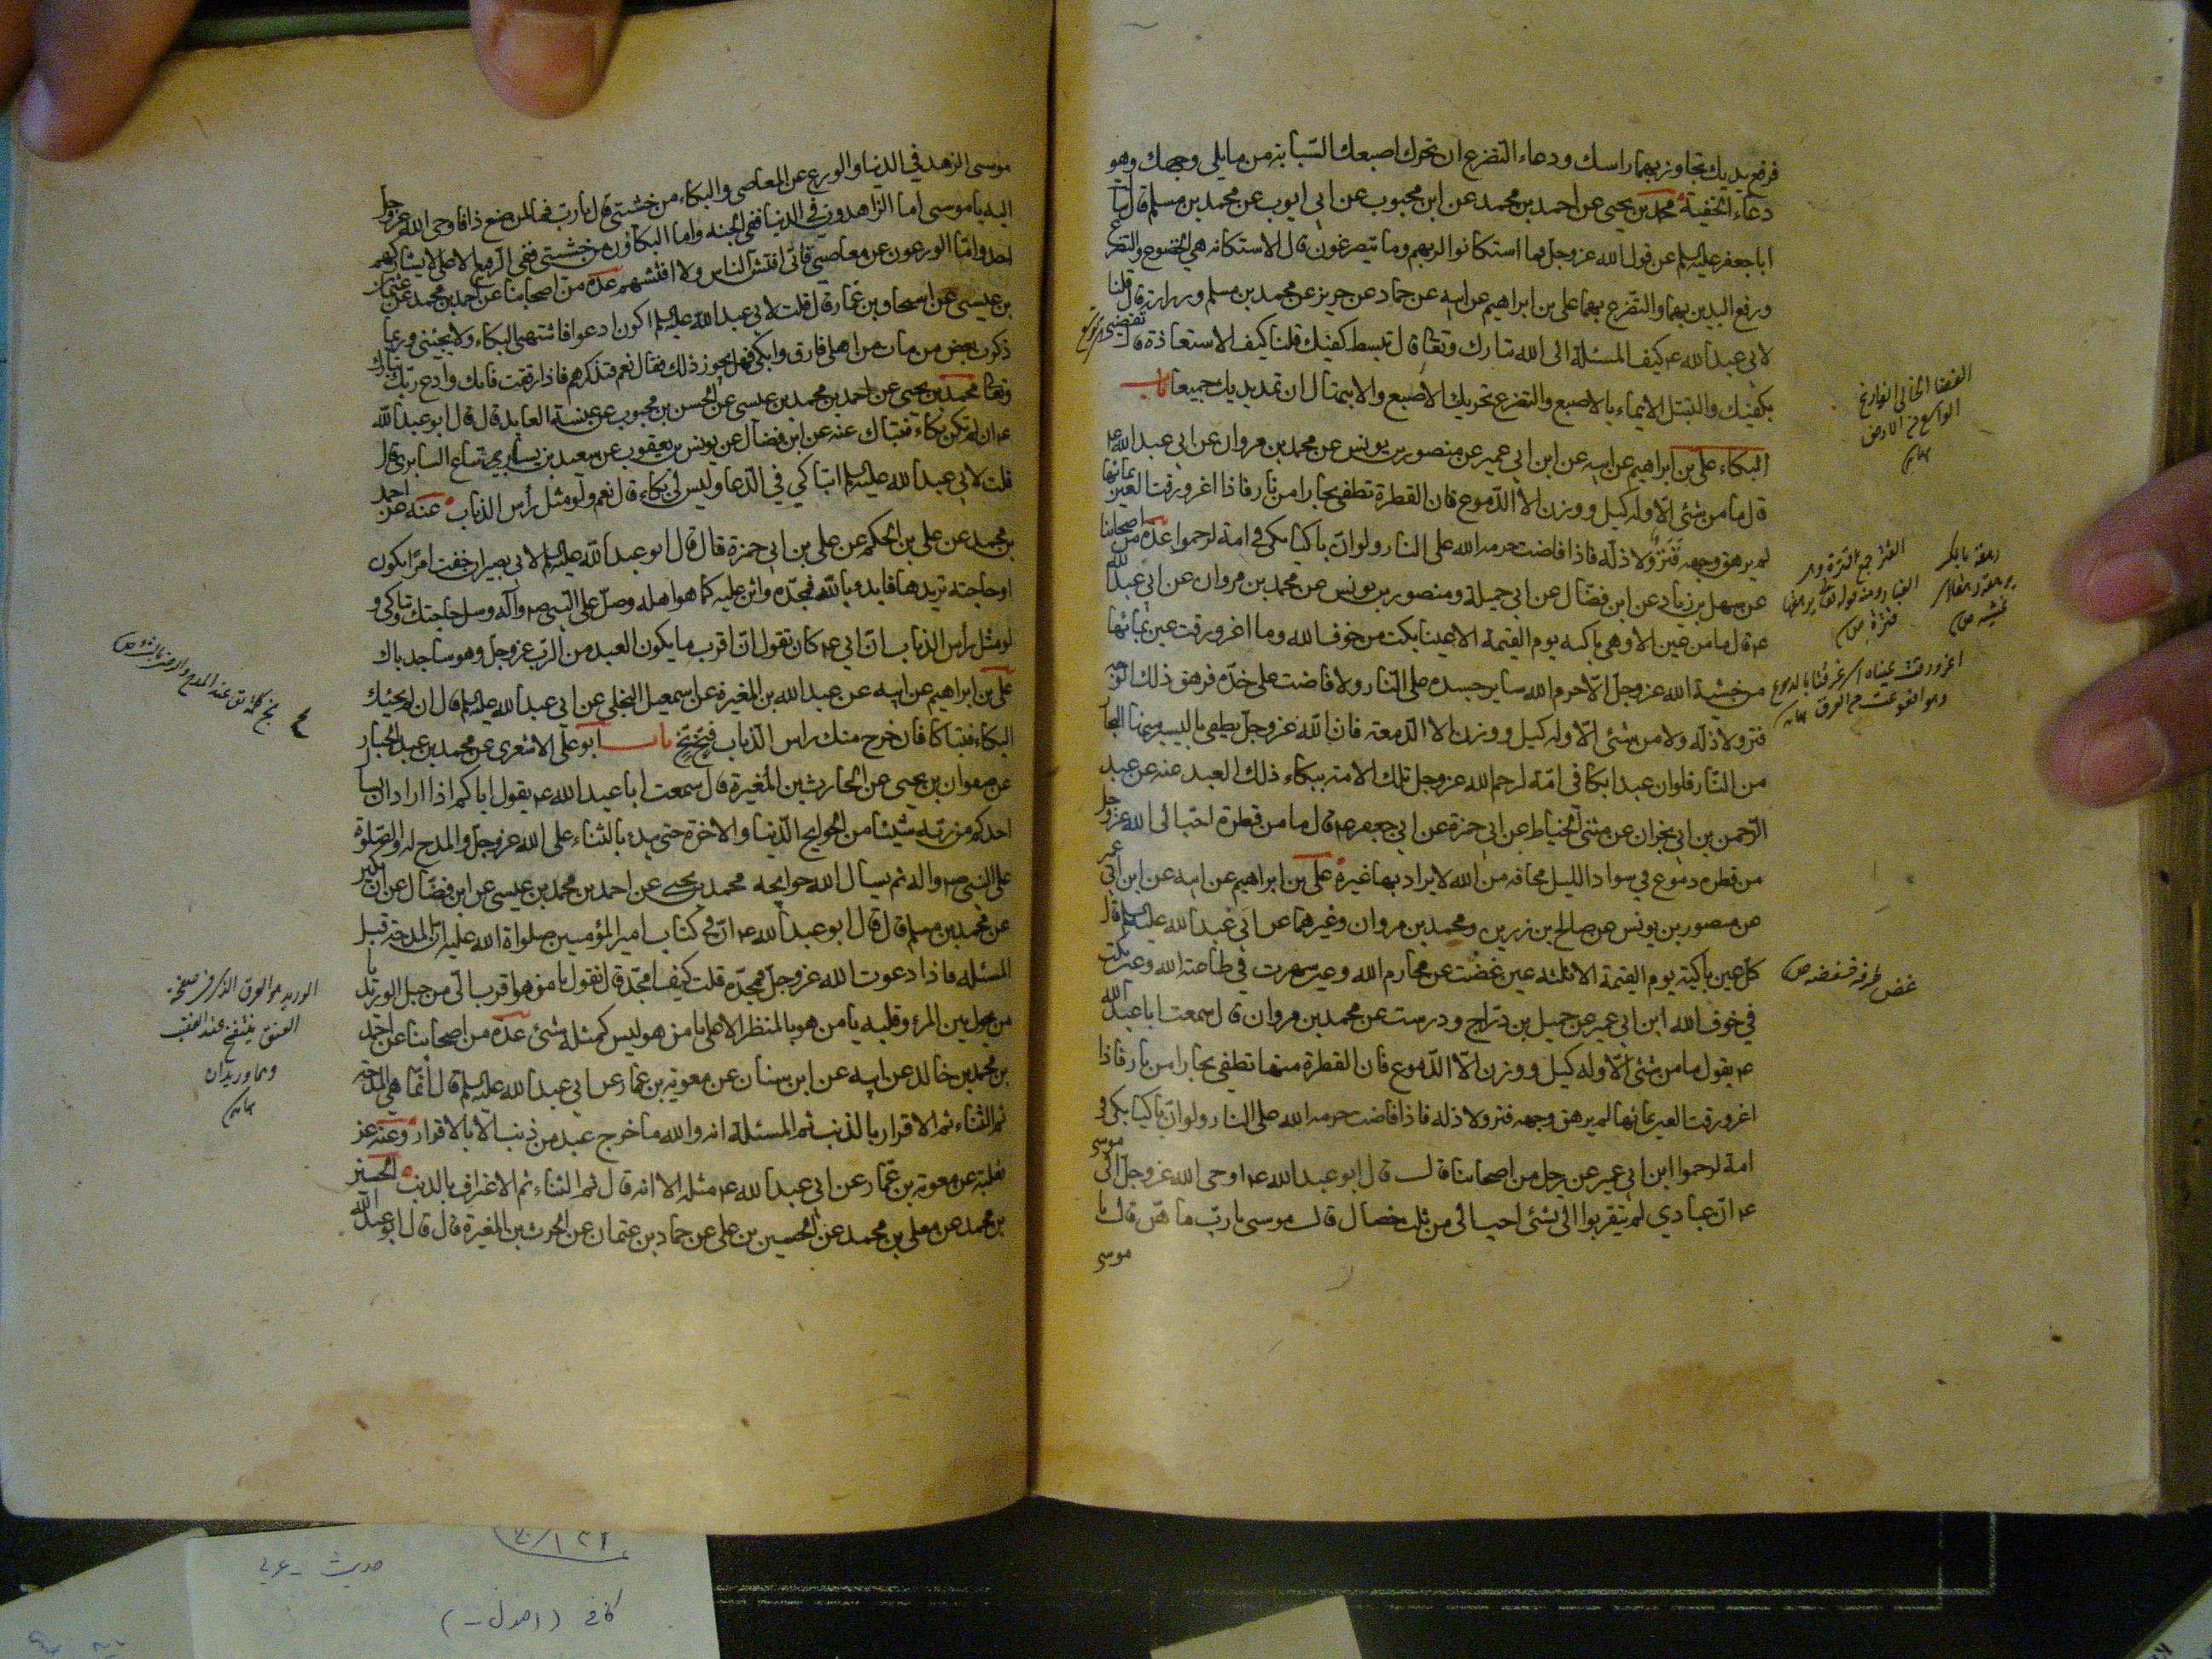 فرفع يديك تجاوز بهما راسك ودعاء التضرع ان تحرك اصبعك السّبابة مما يلى وجهك وهو
دعاء الخيفة محمد بن يحيى عن احمد بن محمد عن ابن محبوب عن ابى ايوب عن محمد بن مسلم قال سألت
ابا جعفر عليه السلم عن قول الله عز وجل فما استكانوا لربهم وما يتضرعون قال الاستكانه هى الخضوع والتضرع
ورفع اليدين بهما والتضرع بهما على بن ابراهيم عن ابيه عن حماد عن حريز عن محمد بن مسلم وزرارة قال قلنا
لابى عبد الله ع كيف المسئلة الى الله تبارك وتعا قال تبسط كفيك قلنا كيف الاستعاذة قال تفضى
بكفيك والتبتل الايماء بالاصبع والتضرع تحريك الاصبع والابتهال ان تمد يديك جميعا باب
البكاء على بن ابراهيم عن ابيه عن ابن ابى عمير عن منصور بن يونس عن محمد بن مروان عن ابى عبد الله ع
قال ما من شئ الّا وله كيل ووزن الا الدّموع فان القطرة تطفى بحارا من نار فاذا اغرورقت العين بمائها
لم يرهق وجهه قَتَرٌ ولا ذلّة فاذا فاضت حرمه الله على النار ولو انّ باكيا بكى فى امة لرحموا عدّة من اصحابنا
عن سهل بن زياد عن ابن فضّال عن ابى جميلة ومنصور بن يونس عن محمد بن مروان عن ابى عبد الله
ع قال ما من عين الا وهى باكيه يوم القيمة الا عينا بكت من خوف الله وما اغرورقت عين بمائها
من خشية الله عز وجل الّا حرم الله ساير جسده على النّار ولا فاضت على خدّه فرهق ذلك الوجه
قتر ولا ذلّه ولا من شئ الّا وله كيل ووزن الا الدّمعة فان الله عز وجل يطفى باليسير منها البحار
من النّار فلو ان عبدا بكا فى امّة لرحم الله عز وجل تلك الامة ببكاء ذلك العبد عنه عن عبد
الرّحمن بن ابى نجران عن مثنى الحنّاط عن ابى حمزة عن ابى جعفر ع قال ما من قطرة احبّ الى الله عز وجل
من قطره دموع فى سواد الليل مخافه من الله لا يراد بها غيره على بن ابراهيم عن ابيه عن ابن ابى عمير
عن منصور بن يونس عن صالح بن زرين ومحمد بن مروان وغيرهما عن ابى عبد الله عليه السلم قال
كل عين باكية يوم القيمة الا ثلثه عين غضّت عن محارم الله وعين سهرت فى طاعة الله وعين بكت
فى خوف الله ابن ابى عمير عن جميل بن درّاج ودرست عن محمد بن مروان قال سمعت ابا عبد الله
ع يقول ما من شئ الّا وله كيل ووزن الّا الدّموع فان القطرة منها تطفى بحارا من نار فاذا
اغرورقت العين بمائها لم يرهق وجهه قتر ولا ذله فاذا فاضت حرمه الله على النار ولو انّ باكيا بكى فى
امة لرحموا ابن ابى عمير عن رجل من اصحابنا قال قال ابو عبد الله ع اوحى الله عز وجل الى موسى
ع انّ عبادى لم يتقربوا الى بشئ احب الى من ثلث خصال قال موسى يا ربّ ما هنّ قال يا
موسى
الفضا الخالى الفارغ
الواسع من الارض
القتر جمع القترة وهى
الغبار ومنه قوله تعالى ترهقها
قترة ص
رهقه بالكسر
يرهقه رهقا اى
غشيه ص
اغرورقت عيناه اى غرقتا بالدموع
وهو افعوعلت من الغرق
غض طرفه خفضه ص
موسى الزهد فى الدنيا والورع عن المعاصى والبكاء من خشيتى قال يا ربّ فما لمن صنع ذا فاوحى الله عز وجل
اليه يا موسى اما الزاهدون فى الدنيا ففى الجنه واما البكاؤن من خشيتى ففى الرفيع الاعلى لا يشاركهم
احد وامّا الورعون عن معاصىّ فانّى افتش الناس ولا افتشهم عدّة من اصحابنا عن احمد بن محمد عن عثمان
بن عيسى عن اسحاق بن عمّار قال قلت لابى عبد الله عليه السلم اكون ادعوا فاشتهى البكاء ولا يجيئنى وربما
ذكرت بعض من مات من اهلى فارق وابكى فهل يجوز ذلك فقال نعم فتذكرهم فاذا رققت فابك وادع ربّك تبارك
وتعا محمد بن يحيى عن احمد بن محمد بن عيسى عن الحسن بن محبوب عن عنبسة العابد قال قال ابو عبد الله
ع ان لم تكن بكاء فتباك عنه عن ابن فضال عن يونس بن يعقوب عن سعيد بن يسار بياع السابرى قال
قلت لابى عبد الله عليه السلم اتباكى فى الدّعا وليس لى بكاء قال نعم ولو مثل رأس الذباب عنه عن احمد
بن محمد عن على بن الحكم عن على بن ابى حمزة قال قال ابو عبد الله عليه السلم لابى بصير ان خفت امرًا يكون
او حاجة تريدها فابدء بالله فمجّده واثن عليه كما هو اهله وصلّ على النّبى ص وآله وسل حاجتك وتباكى و
لو مثل رأس الذباب انّ ابى ع كان يقول انّ اقرب ما يكون العبد من الرّب عز وجل وهو ساجد باك
على بن ابراهيم عن ابيه عن عبد الله بن المغيرة عن اسمعيل البجلى عن ابى عبد الله عليه السلم قال ان لم يجئك
البكاء فتباكا فان خرج منك راس الذّباب فبخ بخ باب ابو على الاشعرى عن محمد بن عبد الجبار
عن صفوان بن يحيى عن الحارث بن المغيرة قال سمعت ابا عبد الله ع يقول اياكم اذا اراد ان يسأل
احدكم من ربّه شيئا من الحوايج الدّنيا والاخرة حتى يبدء بالثناء على الله عز وجل والمدح له والصّلوة
على النبى ص واله ثم يسال الله حوايجه محمد بن يحيى عن احمد بن محمد بن عيسى عن ابن فضّال عن ابن بكير
عن محمد بن مسلم قال قال ابو عبد الله ع انّ فى كتاب امير المؤمنين صلواة الله عليه انّ المدحة قبل
المسئله فاذا دعوت الله عز وجل فمجّده قلت كيف امجّد قال تقول يا من هو اقرب الىّ من حبل الوريد يا
من يحول بين المرء وقلبه يا من هو بالمنظر الاعلى يا من هو ليس كمثله شئ عدّة من اصحابنا عن احمد
بن محمد بن خالد عن ابيه عن ابن سنان عن معويه بن عمار عن ابى عبد الله عليه السلم قال انّما هى المدحة
ثم الثناء ثم الاقرار بالذنب ثم المسئلة انه والله ما خرج عبد من ذنب الا بالاقرار وعنه عن
ثعلبة عن معويه بن عمّار عن ابى عبد الله ع مثله الا انه قال ثم الثناء ثم الاعتراف بالذنب الحسين
بن محمد عن معلى بن محمد عن الحسين بن على عن حماد بن عثمان عن الحرث بن المغيرة قال قال ابو عبد الله
بخ كلمة تق عند المدح والرضى بالشئ ص
الوريد هو العرق الذى فى صفحة
العنق ينتفخ عند الغضب
وهما وريدان
حديث - عربى
كافى (اصول -)